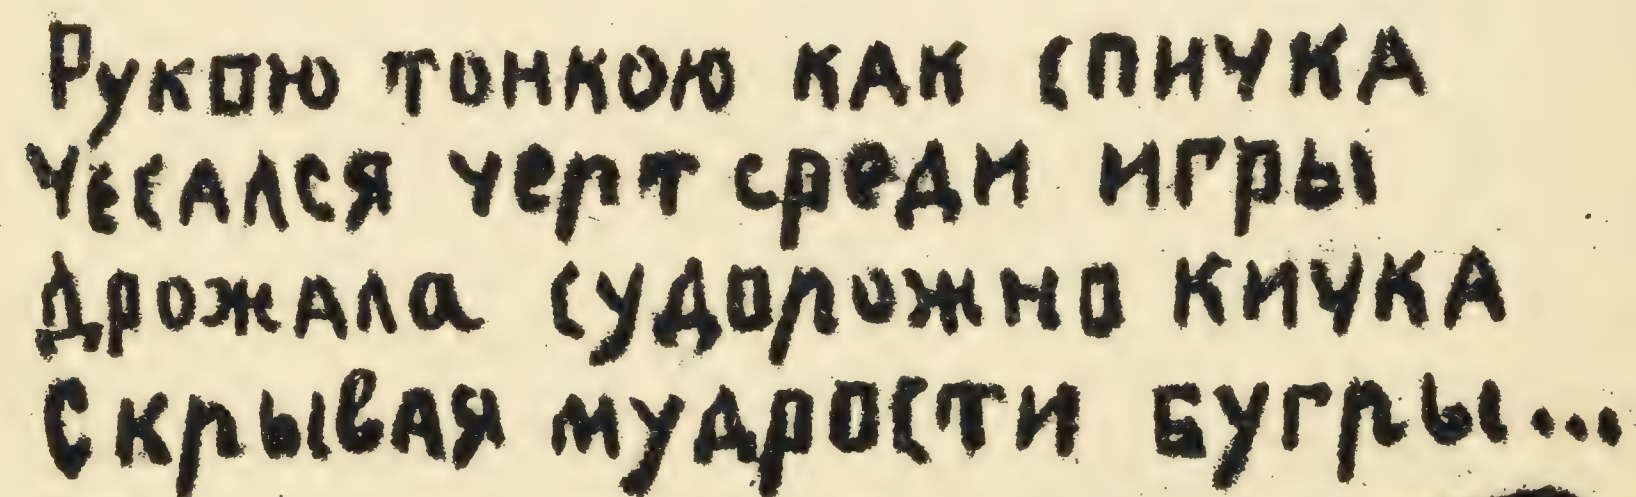 Рукою тонкою как спичка
Чесался черт среди игры
Дрожала судорожно кичка
Скрывая мудрости бугры...